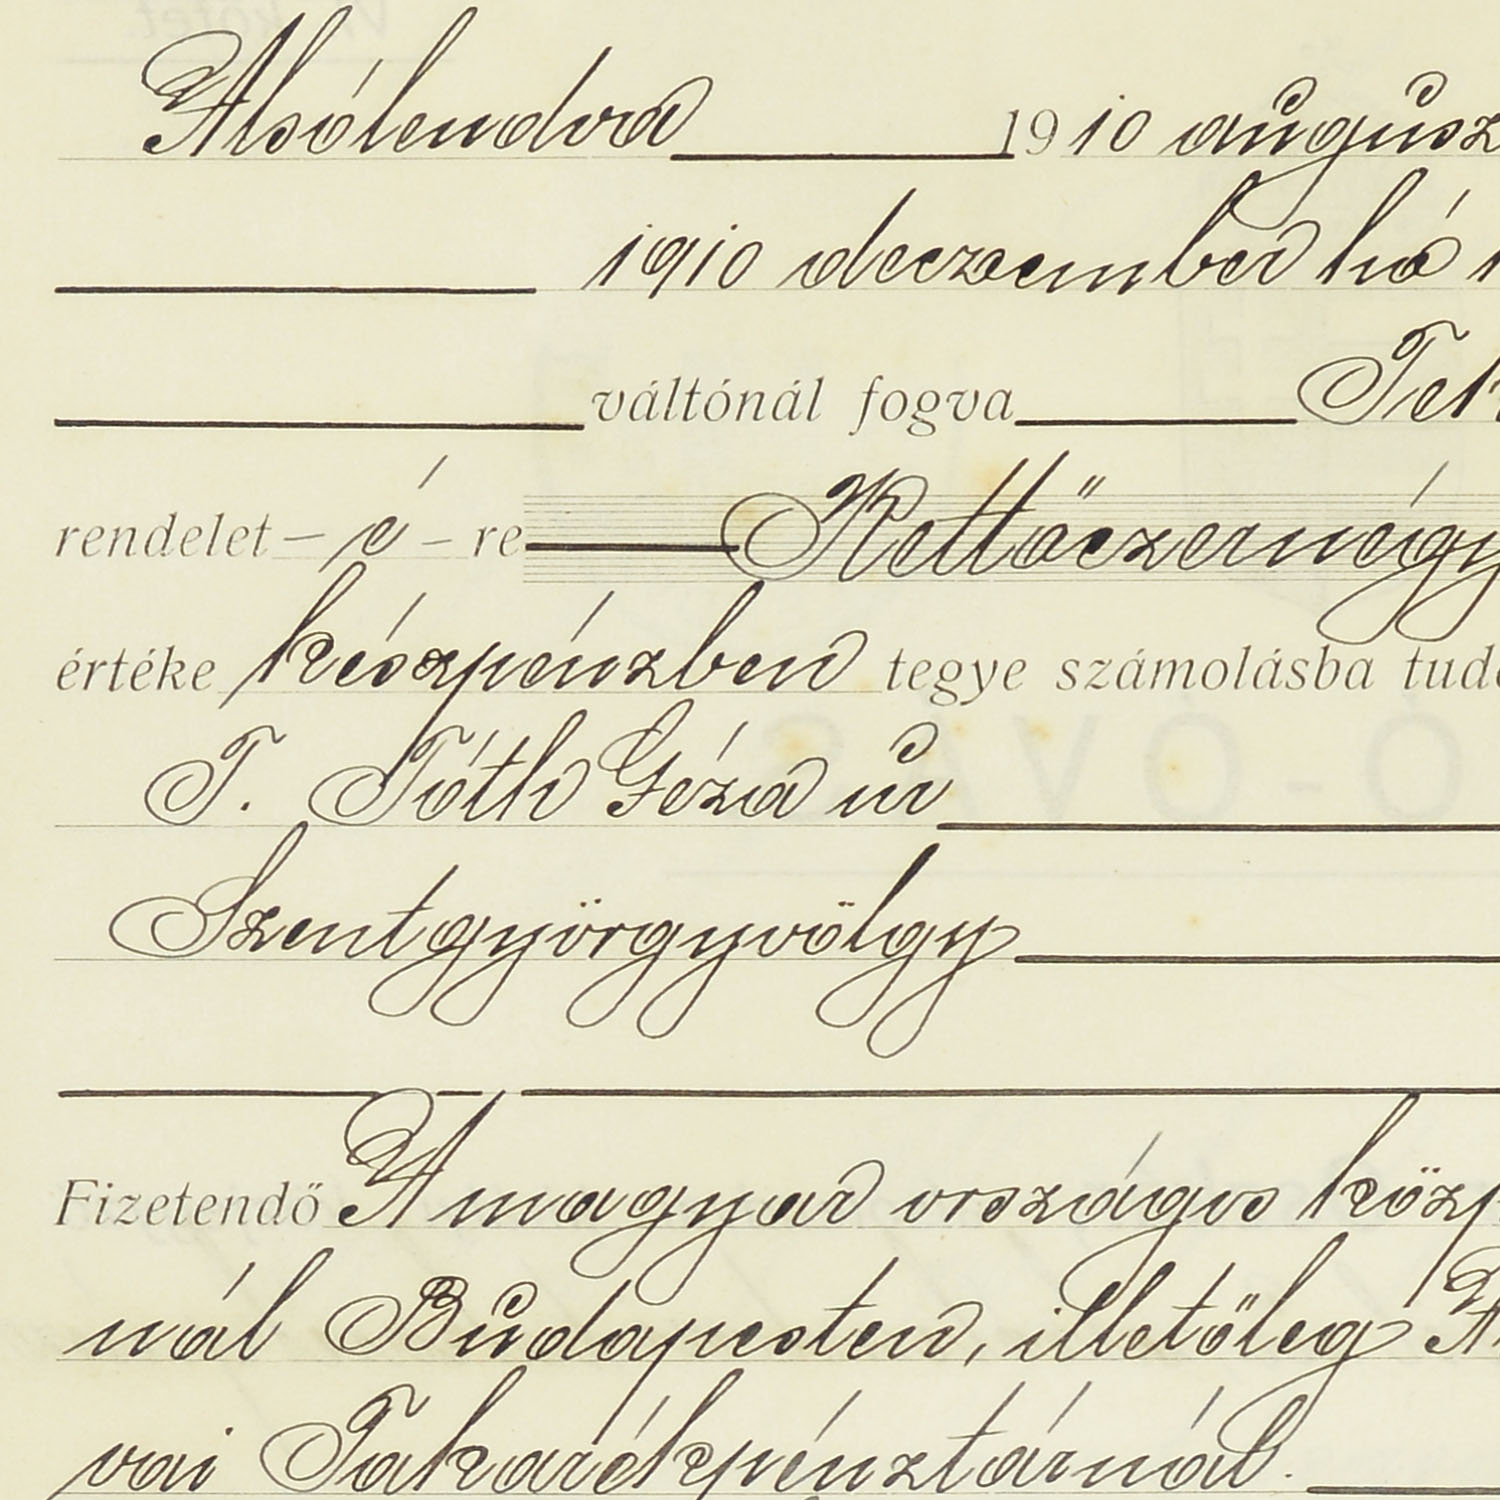 Alsólendva 1910 augusz
1910 deczember hó 1
váltónál fogva
rendelet - é - re Kettőezernégy
értéke készpénzben tegye számolásba tud
T. Tóth Géza úr
Szentgyörgyvölgy
Fizetendő A magyar országos közp
nál Budapesten, illetőleg A
vai Takarékpénztárnál.